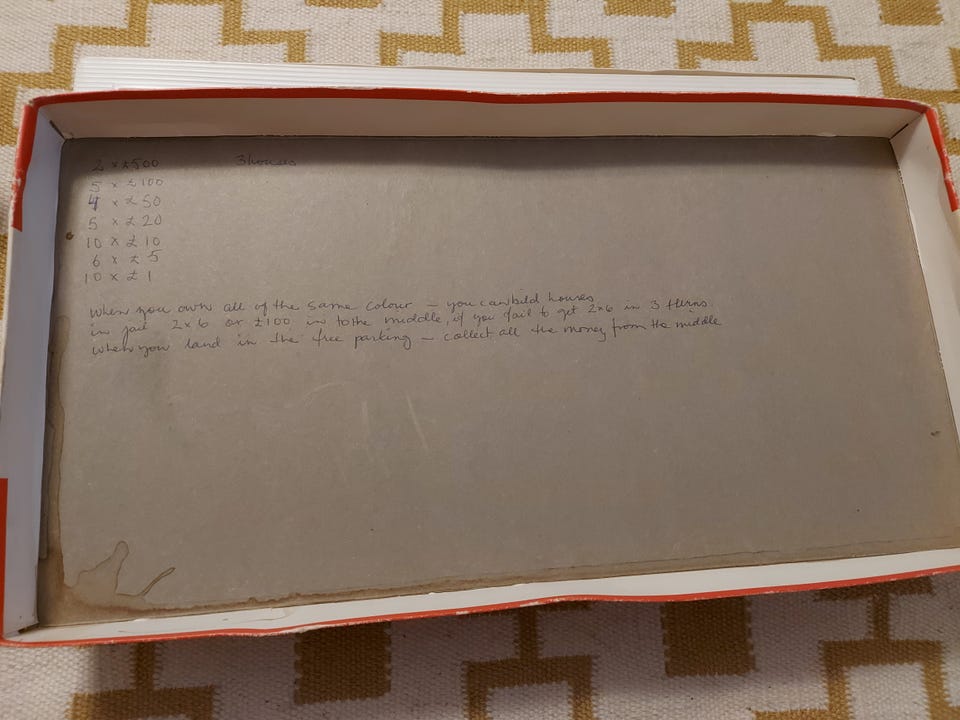 2 x £500 3 houses
5 x £100
4 x £50
5 x £20
10 x £10
6 x £5
10 x £1
When you own all of the same colour – you can bild houses
in jail 2x6 or £100 in to the middle, if you fail to get 2x6 in 3 tterns.
When you land in the free parking – collect all the money from the middle